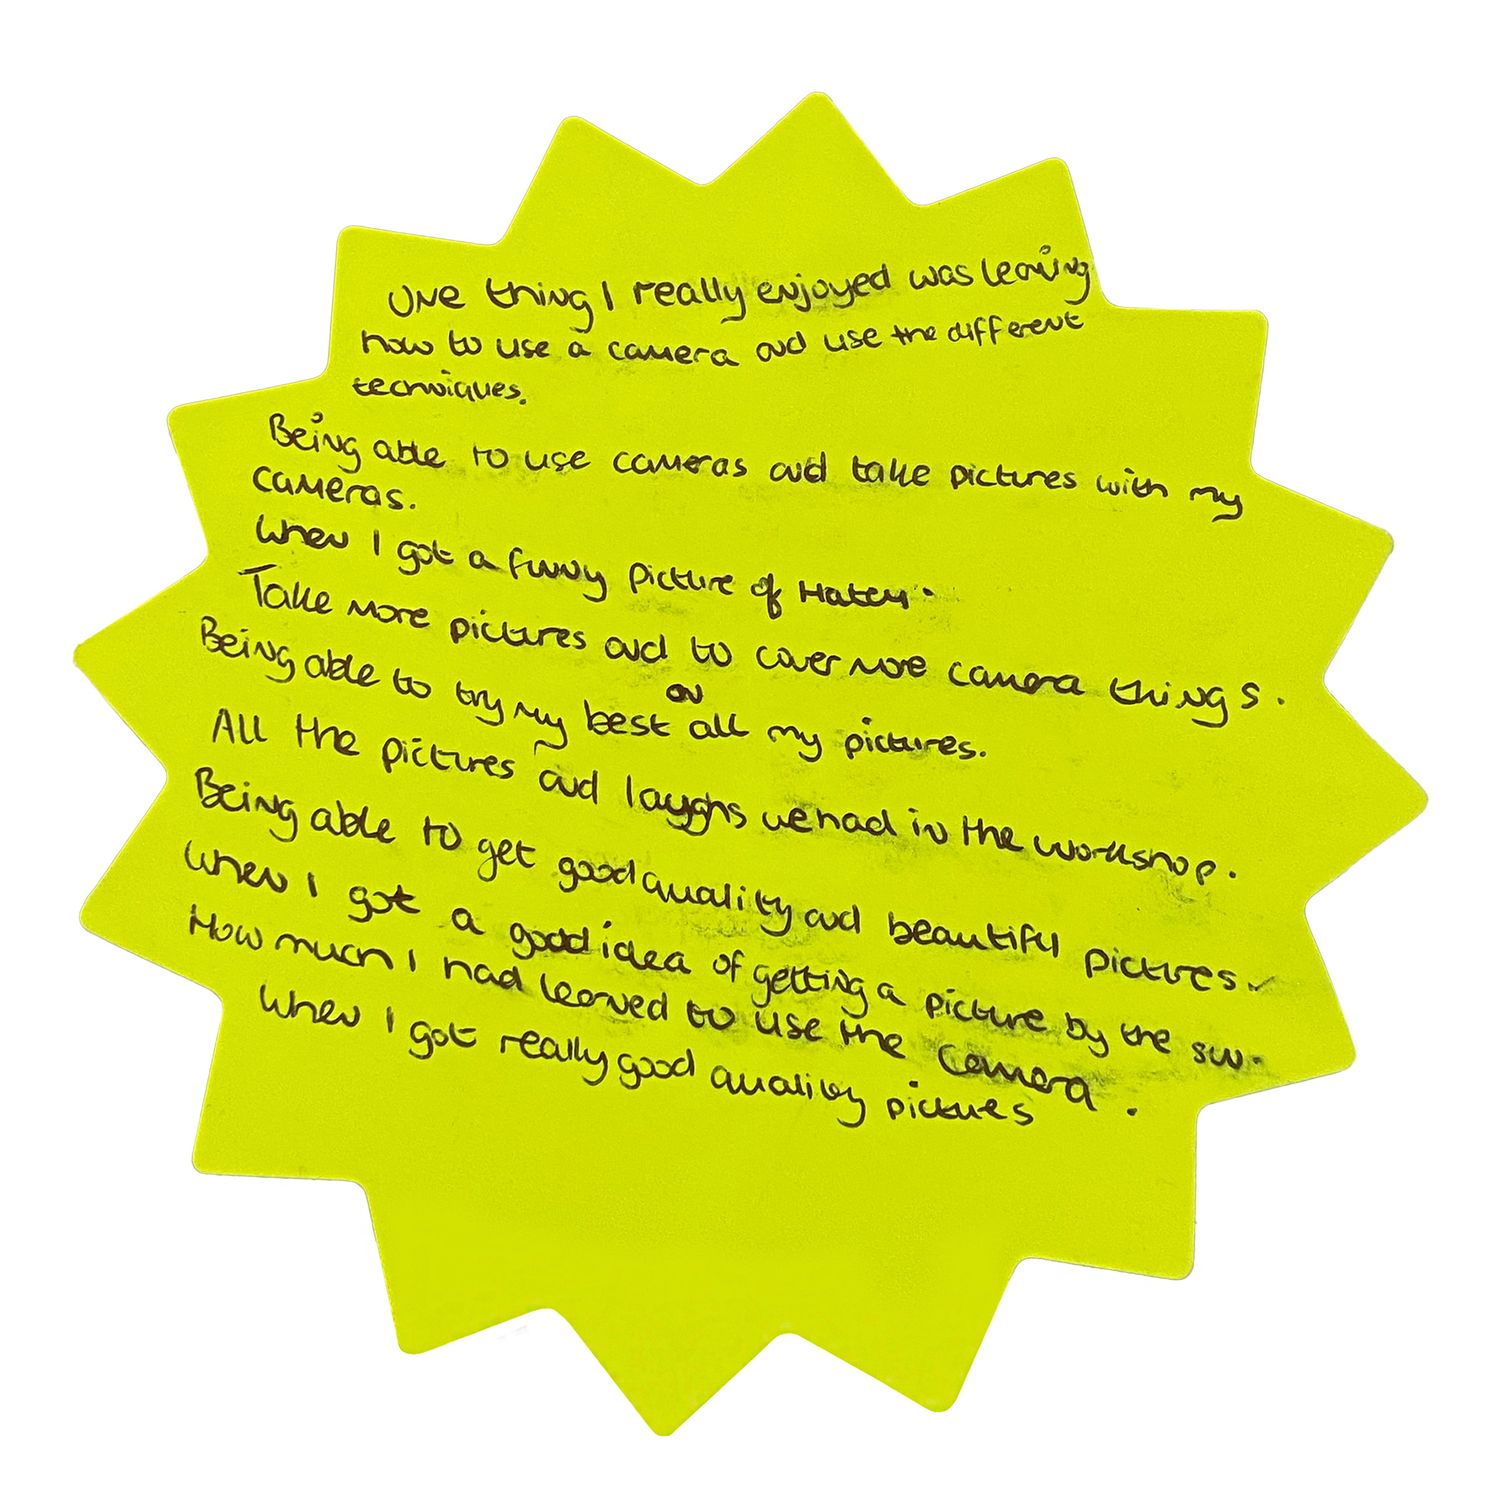 One thing I really enjoyed was learning
how to use a camera and use the different
techniques.
Being able to use cameras and take pictures with my
cameras.
When I got a funny picture of
Take more pictures and to cover more camera things.
Being able to try my best on all my pictures.
All the pictures and laughs we had in the workshop.
Being able to get good quality and beautiful pictures.
When I got a good idea of getting a picture by the sun.
How much I had learned to use the camera.
When I got really good quality pictures